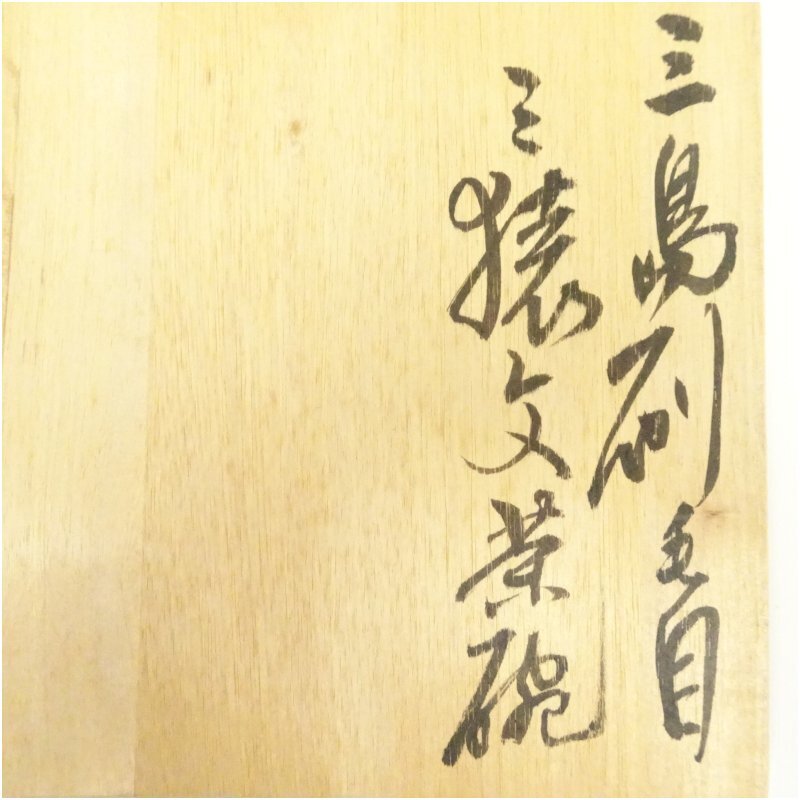 三嶋刷毛目
三猿文茶碗